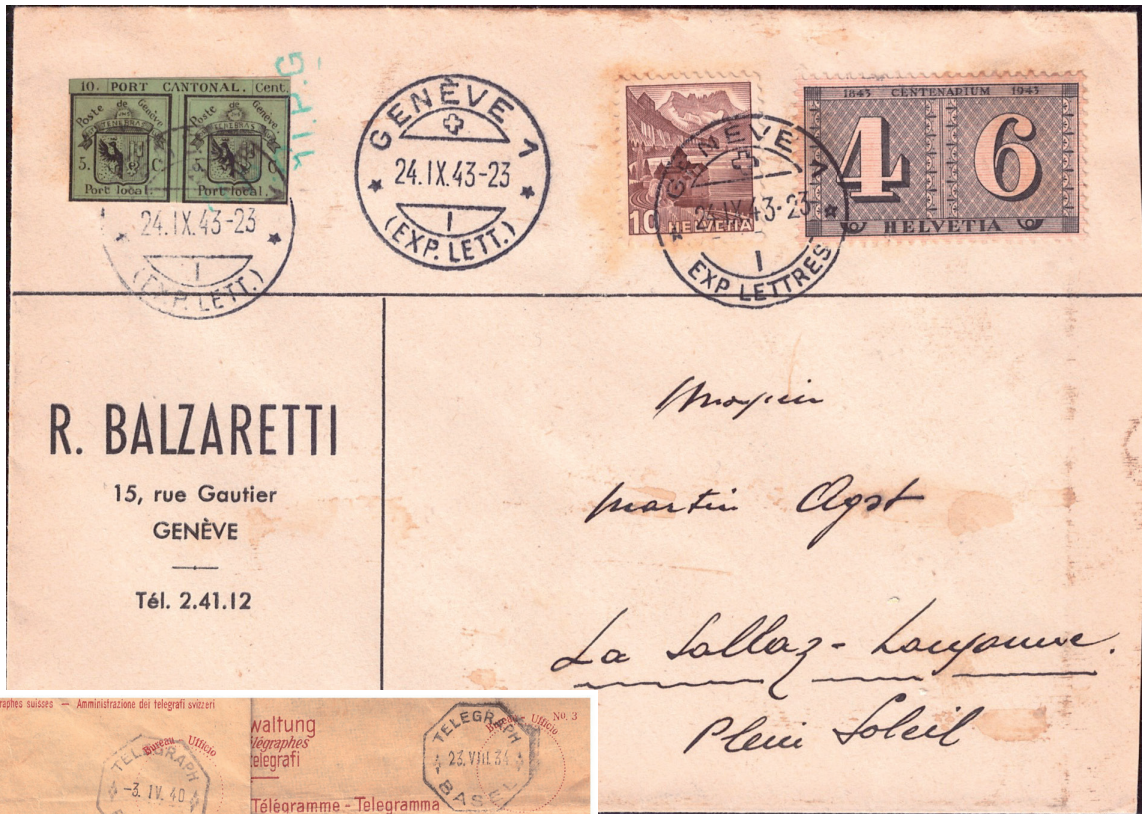 10. PORT CANTONAL. Cent.
Poste de Genève
POST TENEBRAS
5. C.
Port local.
Poste de Genève.
5. C.
Port local.
24.IX.43-23
I
(EXP. LETT.)
GENÈVE 1
24.IX.43-23
I
(EXP. LETT.)
10 HELVETIA
GENÈVE 1
24.IX.43-23
I
EXP. LETTRES
1843 CENTENARIUM 1943
4 6
HELVETIA
R. BALZARETTI
15, rue Gautier
GENÈVE
Tél. 2.41.12
Martin Agst
La Sallaz - Lausanne.
Plein Soleil
graphes suisses — Amministrazione dei telegrafi svizzeri
Bureau - Ufficio
TELEGRAPH
-3. IV. 40
waltung
télégraphes
telegrafi
Télégramme - Telegramma
Bureau - Ufficio No. 3
TELEGRAPH
23. VIII. 34
BASEL